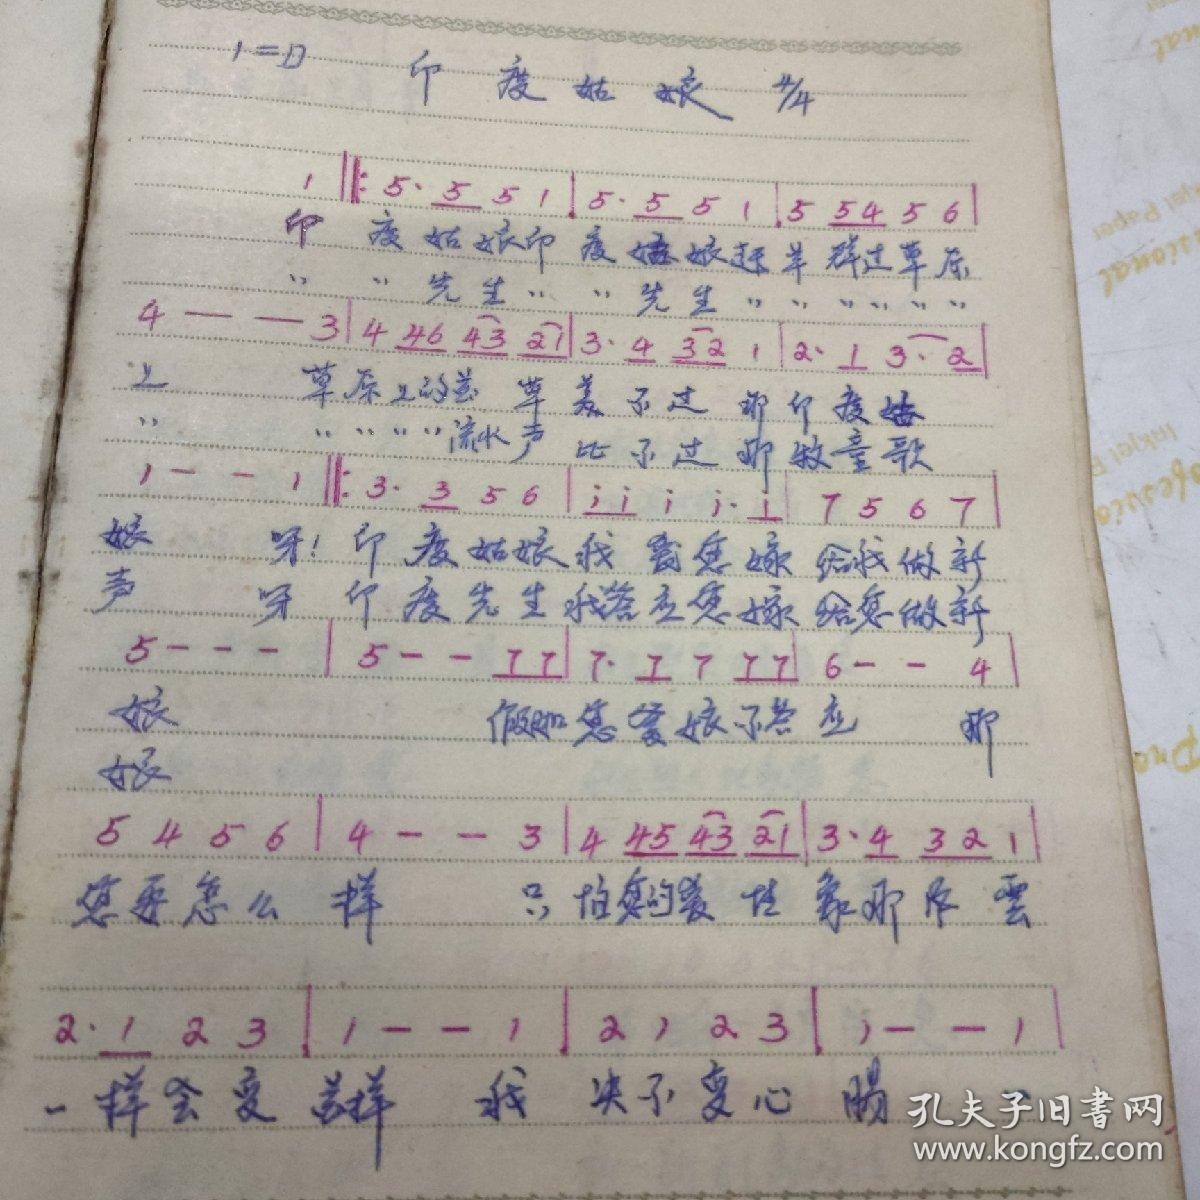 1=D 印度姑娘 4/4
1 ‖: 5· 5 5 1 | 5· 5 5 1 | 5 54 5 6 |
印 度 姑 娘 印 度 姑 娘 赶 羊 群 过 草 原
〃 〃 先 生 〃 〃 先 生 〃 〃 〃 〃 〃 〃
4 — — 3 | 4 46 43 21 | 3· 4 32 1 | 2· 1 3· 2 |
上 草 原 上 的 花 草 美 不 过 那 印 度 姑
〃 〃 〃 〃 〃 流水 声 比 不 过 那 牧 童 歌
1 - - 1 ‖: 3· 3 5 6 | i i i i· i | 7 5 6 7 |
娘 呀! 印 度 姑 娘 我 爱 您 嫁 给 我 做 新
声 呀 印 度 先 生 我 答 应 您 嫁 给 您 做 新
5 - - - | 5 - - 7 7 | 7· 7 7 7 7 | 6 - - 4 |
娘 假如 您 爹 娘 不 答 应 那
娘
5 4 5 6 | 4 - - 3 | 4 45 43 21 | 3· 4 3 2 1 |
您 要 怎 么 样 只 怕 您 的 爱 情 象 那 风 雲
2· 1 2 3 | 1 - - 1 | 2 1 2 3 | 1 - - 1 |
一 样 会 变 样 我 决 不 变 心
孔夫子旧书网
www.kongfz.com